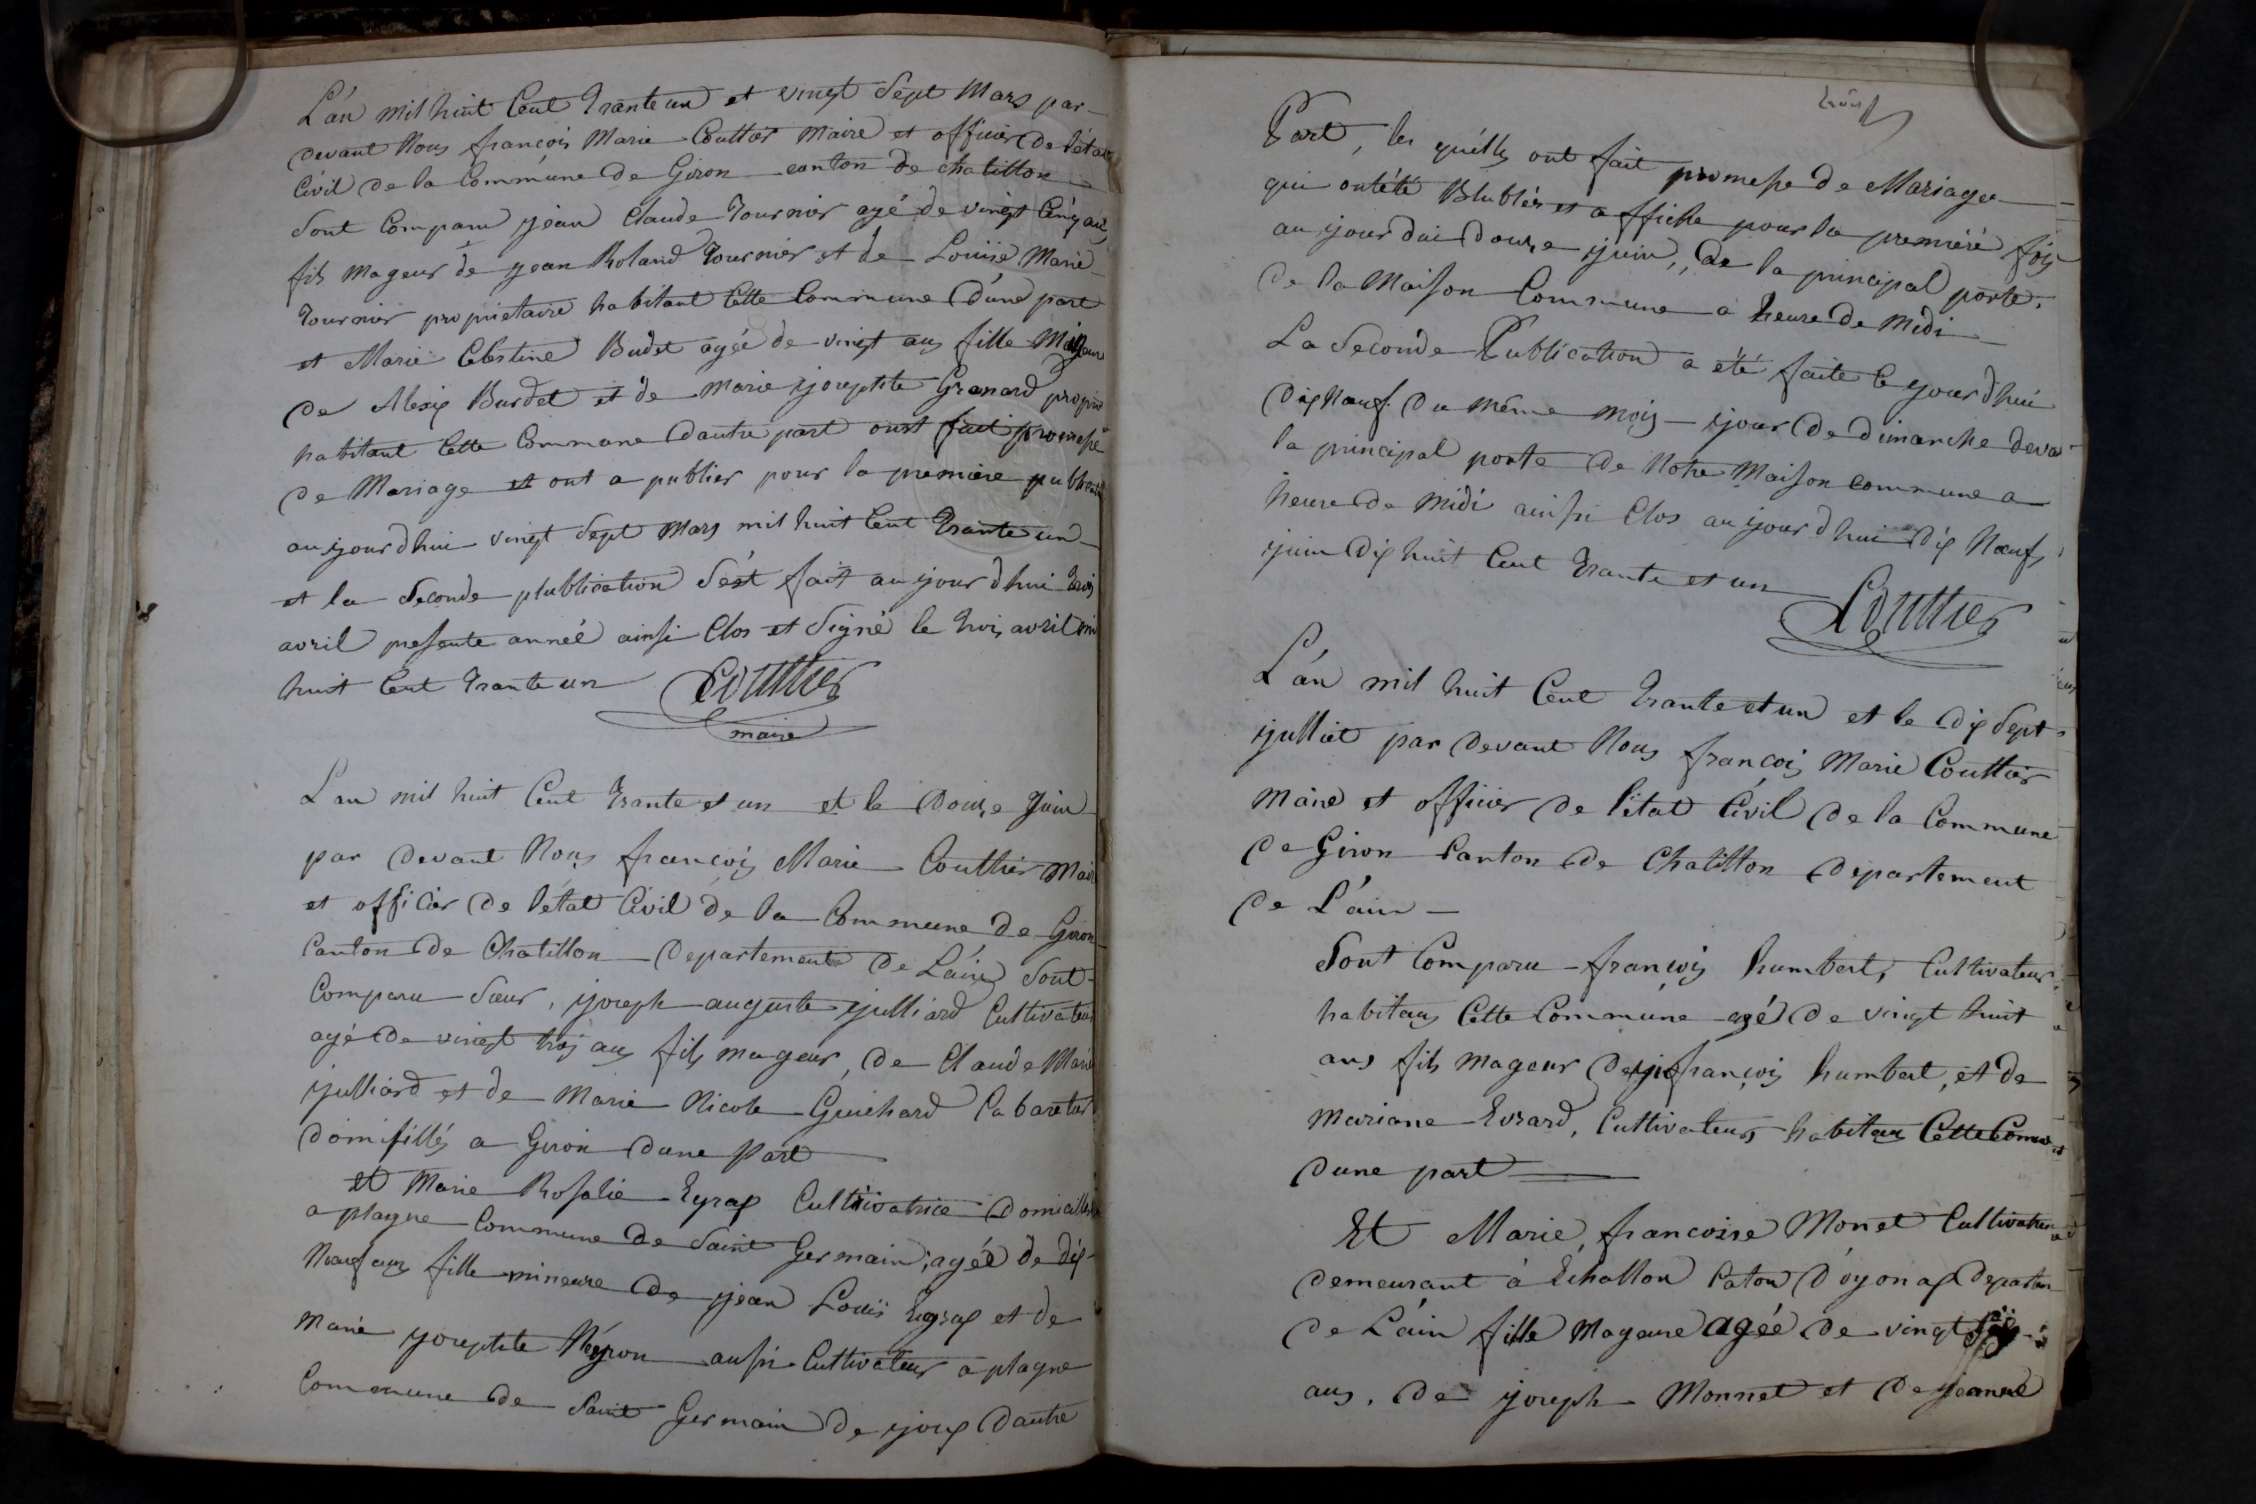 L'an mil huit Cent trante un et vingt Sept Mars par-
devant Nous françois Marie Couttier Maire et officier de l'état
Civil de la Commune de Giron canton de chatillon
Sont Comparu jean Claude Tournier agé de vingt Cinq ans
fils mageur de jean Roland Tournier et de Louise Marie
Tournier proprietaire habitant Cette Commune d'une part
et Marie Celestine Budet agée de vingt ans fille Mageure
de Alexis Burdet et de Marie josephte Grenard propri
habitant Cette Commune d'autre part ont fait promesse
de Mariage et ont a publier pour la premiere publication
au jour d'hui vingt Sept Mars mil huit Cent trante un
et la Seconde plublication S'est fait au jour d'hui trois
avril presente année ainsi Clos et Signé le trois avril mil
huit Cent trante un Couttier
maire
L'an mil huit Cent trante et un et le douze Juin
par devant Nous françois Marie Couttier Maire
et officier de l'état Civil de la Commune de Giron
Canton de Chatillon Departement de L'ain Sont
Comparu Sieur, joseph auguste julliard Cultivateur
agé de vingt trois ans fils mageur, de Claude Marie
julliard et de Marie Nicole Guichard Cabaretier
domisillés a Giron dune Part
et Marie Rosalie Eyrax Cultivatrice Domicillée
a plagne Commune de Saint Germain, agée de dix
Neuf ans fille mineure de jean Louis Eyrax et de
Marie josephte Neyron aussi Cultivateur a plagne
Commune de Saint Germain de joux Dautre
trois
Part, les qu'ells ont fait promesse de Mariage
qui ontété Blubliés et affiche pour la premiéré fois
au jour dui douze juin, de la principal porte
de la Maison Commune a heure de Midi
La Seconde Publication a été faite le jour d'hui
dix Neuf du même mois jour de dimanche deva
la principal porte de Notre Maison commune a
heure de Midi ainsi Clos au jour d'hui dix Neufs
juin dix huit Cent trante et un
Couttier
L'an mil huit Cent trante et un et le dix Sept
julliet par devant Nous françois Marie Couttier
Maire et officier de l'état Civil de la Commune
de Giron Canton de Chatillon Departement
de L'ain
Sont Comparu françois humbert, Cultivateur
habitans Cette Commune agé de vingt huit
ans fils mageur de françois humbert, et de
Mariane Evrard, Cultivateurs habitans Cette Comm
dune part
Et Marie, francoise Monet Cultivatric
demeurant à Echallon Caton d'oyonax Departem
de L'ain fille Mageure agée de vingt
ans, de joseph Monnet et de jeanne